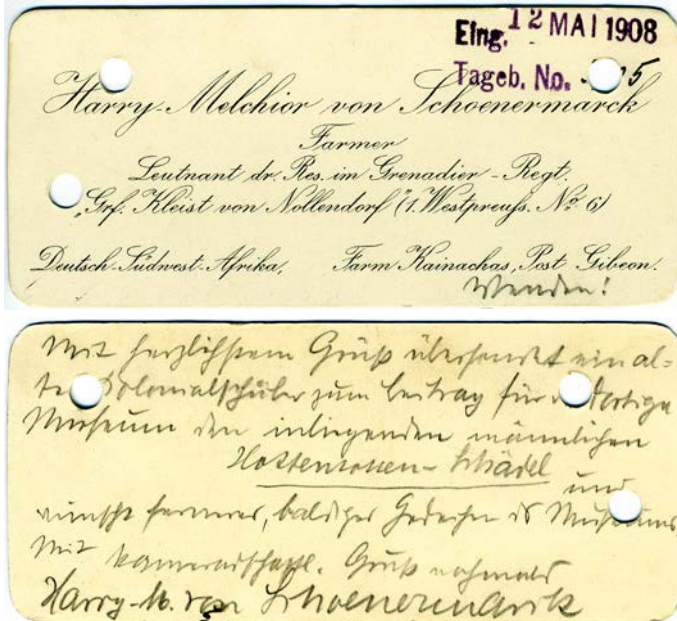 Eing. 12 MAI 1908
Tageb. No. 5
Harry-Melchior von Schoenermarck
Farmer
Leutnant dr. Res. im Grenadier-Regt.
„Grf. Kleist von Nollendorf" (1. Westpreuss. No 6)
Deutsch-Südwest-Afrika, Farm Kainachas, Post Gibeon.
Wenden!
Mit herzlichstem Gruß übersendet ein al-
ter Kolonialschüler zum Beitrag für dortige
Museum den inliegenden männlichen
Hottentotten-Schädel
und
wünscht ferneres, baldiges Gedeihen ds Museums.
Mit kameradschaftl. Gruß nochmals
Harry-M. von Schoenermarck